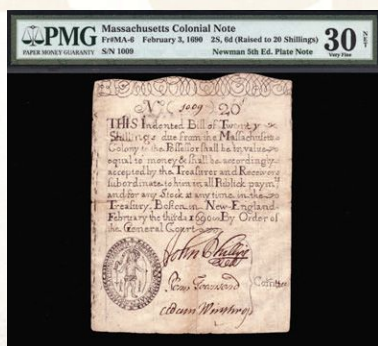 PMG
PAPER MONEY GUARANTY
Massachusetts Colonial Note
Fr#MA-6 February 3, 1690 2S, 6d (Raised to 20 Shillings)
S/N 1009 Newman 5th Ed. Plate Note
30 NET
Very Fine
No (1009) 20s
THIS Indented Bill of Twenty
Shillings due from the Massachusets
Colony to the Possessor shall be in value
equal to money & shall be accordingly
accepted by the Treasurer and Receivers
subordinate to him in all Publick paymts
and for any Stock at any time in the
Treasury. Boston in New-England
February the third 1690. By Order of
the General Court
John Phillips
Penn Townsend
Adam Winthrop
Comttee